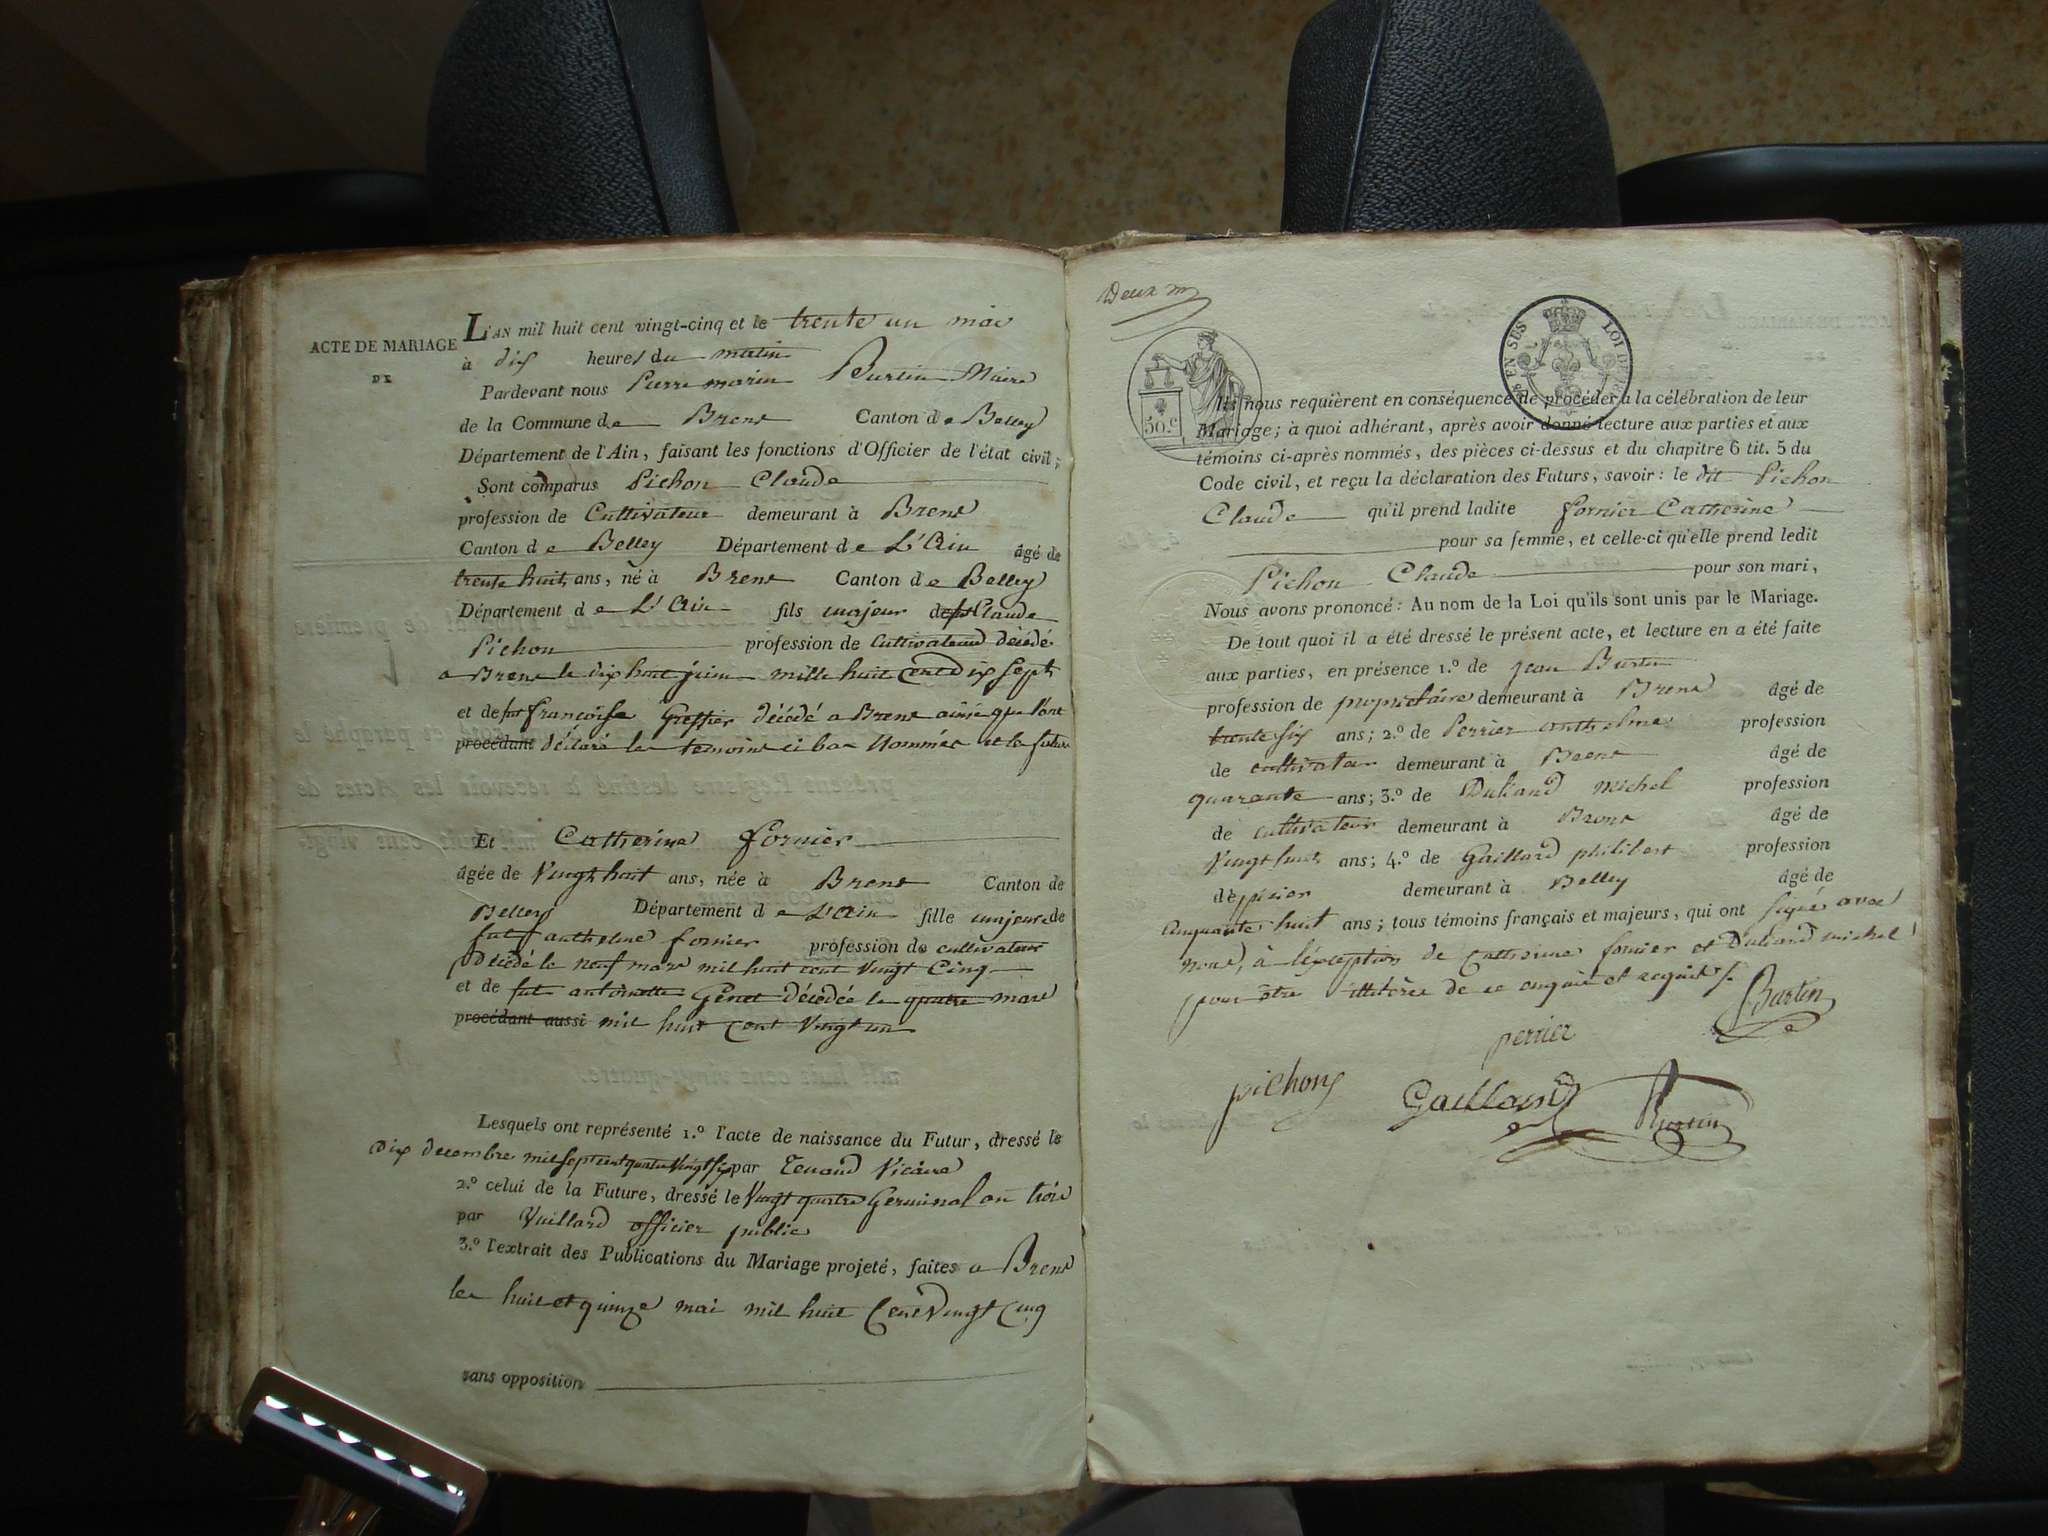 ACTE DE MARIAGE
DE
L'AN mil huit cent vingt-cinq et le trente un mai
à dix heures du matin
Pardevant nous Pierre marin Burtin Maire
de la Commune de Brens Canton de Belley
Département de l'Ain, faisant les fonctions d'Officier de l'état civil;
Sont comparus Pichon Claude
profession de Cultivateur demeurant à Brens
Canton de Belley Département de L'Ain âgé de
trente huit ans, né à Brens Canton de Belley
Département de L'Ain fils majeur de feu Claude
Pichon profession de Cultivateur décédé
a Brens le dix huit juin mille huit Cent dix Sept
et de fut francoise Greffier décédé a Brens ainsi que l'ont
procédant déclaré les temoins ci bas Nommés et la future
Et Catherine fornier
âgée de Vingt huit ans, née à Brens Canton de
Belley Département de L'Ain fille majeure de
fut anthelme fornier profession de cultivateur
Décédé le neuf mars mil huit cent vingt Cinq
et de fut antoinette Genet décédée le quatre mars
procédant aussi mil huit Cent Vingt un
Lesquels ont représenté 1.º l'acte de naissance du Futur, dressé le
Dix decembre mil sept cent quatre vingt six par Tenand Vicaire
2.º celui de la Future, dressé le Vingt quatre Germinal an trois
par Vuillard officier public
3.º l'extrait des Publications du Mariage projeté, faites a Brens
les huit et quinze mai mil huit Cent Vingt Cinq
sans opposition
Deux
50.c
EN SES LOI DE
Ils nous requièrent en conséquence de procéder à la célébration de leur
Mariage; à quoi adhérant, après avoir donné lecture aux parties et aux
témoins ci-après nommés, des pièces ci-dessus et du chapitre 6 tit. 5 du
Code civil, et reçu la déclaration des Futurs, savoir: le dit Pichon
Claude qu'il prend ladite fornier Catherine
pour sa femme, et celle-ci qu'elle prend ledit
Pichon Claude pour son mari,
Nous avons prononcé: Au nom de la Loi qu'ils sont unis par le Mariage.
De tout quoi il a été dressé le présent acte, et lecture en a été faite
aux parties, en présence 1.º de jean Burtin
profession de propriétaire demeurant à Brens âgé de
trente six ans; 2.º de Perrier anthelme profession
de cultivateur demeurant à Brens âgé de
quarante ans; 3.º de Duliand michel profession
de cultivateur demeurant à Brens âgé de
Vingt huit ans; 4.º de Gaillard philibert profession
d'épicier demeurant à Belley âgé de
Cinquante huit ans; tous témoins français et majeurs, qui ont signé avec
nous, à l'exception de Catherine fornier et Duliand michel
pour être illitérés de ce enquis et requis
Burtin
perrier
pichon
Gaillard
Burtin